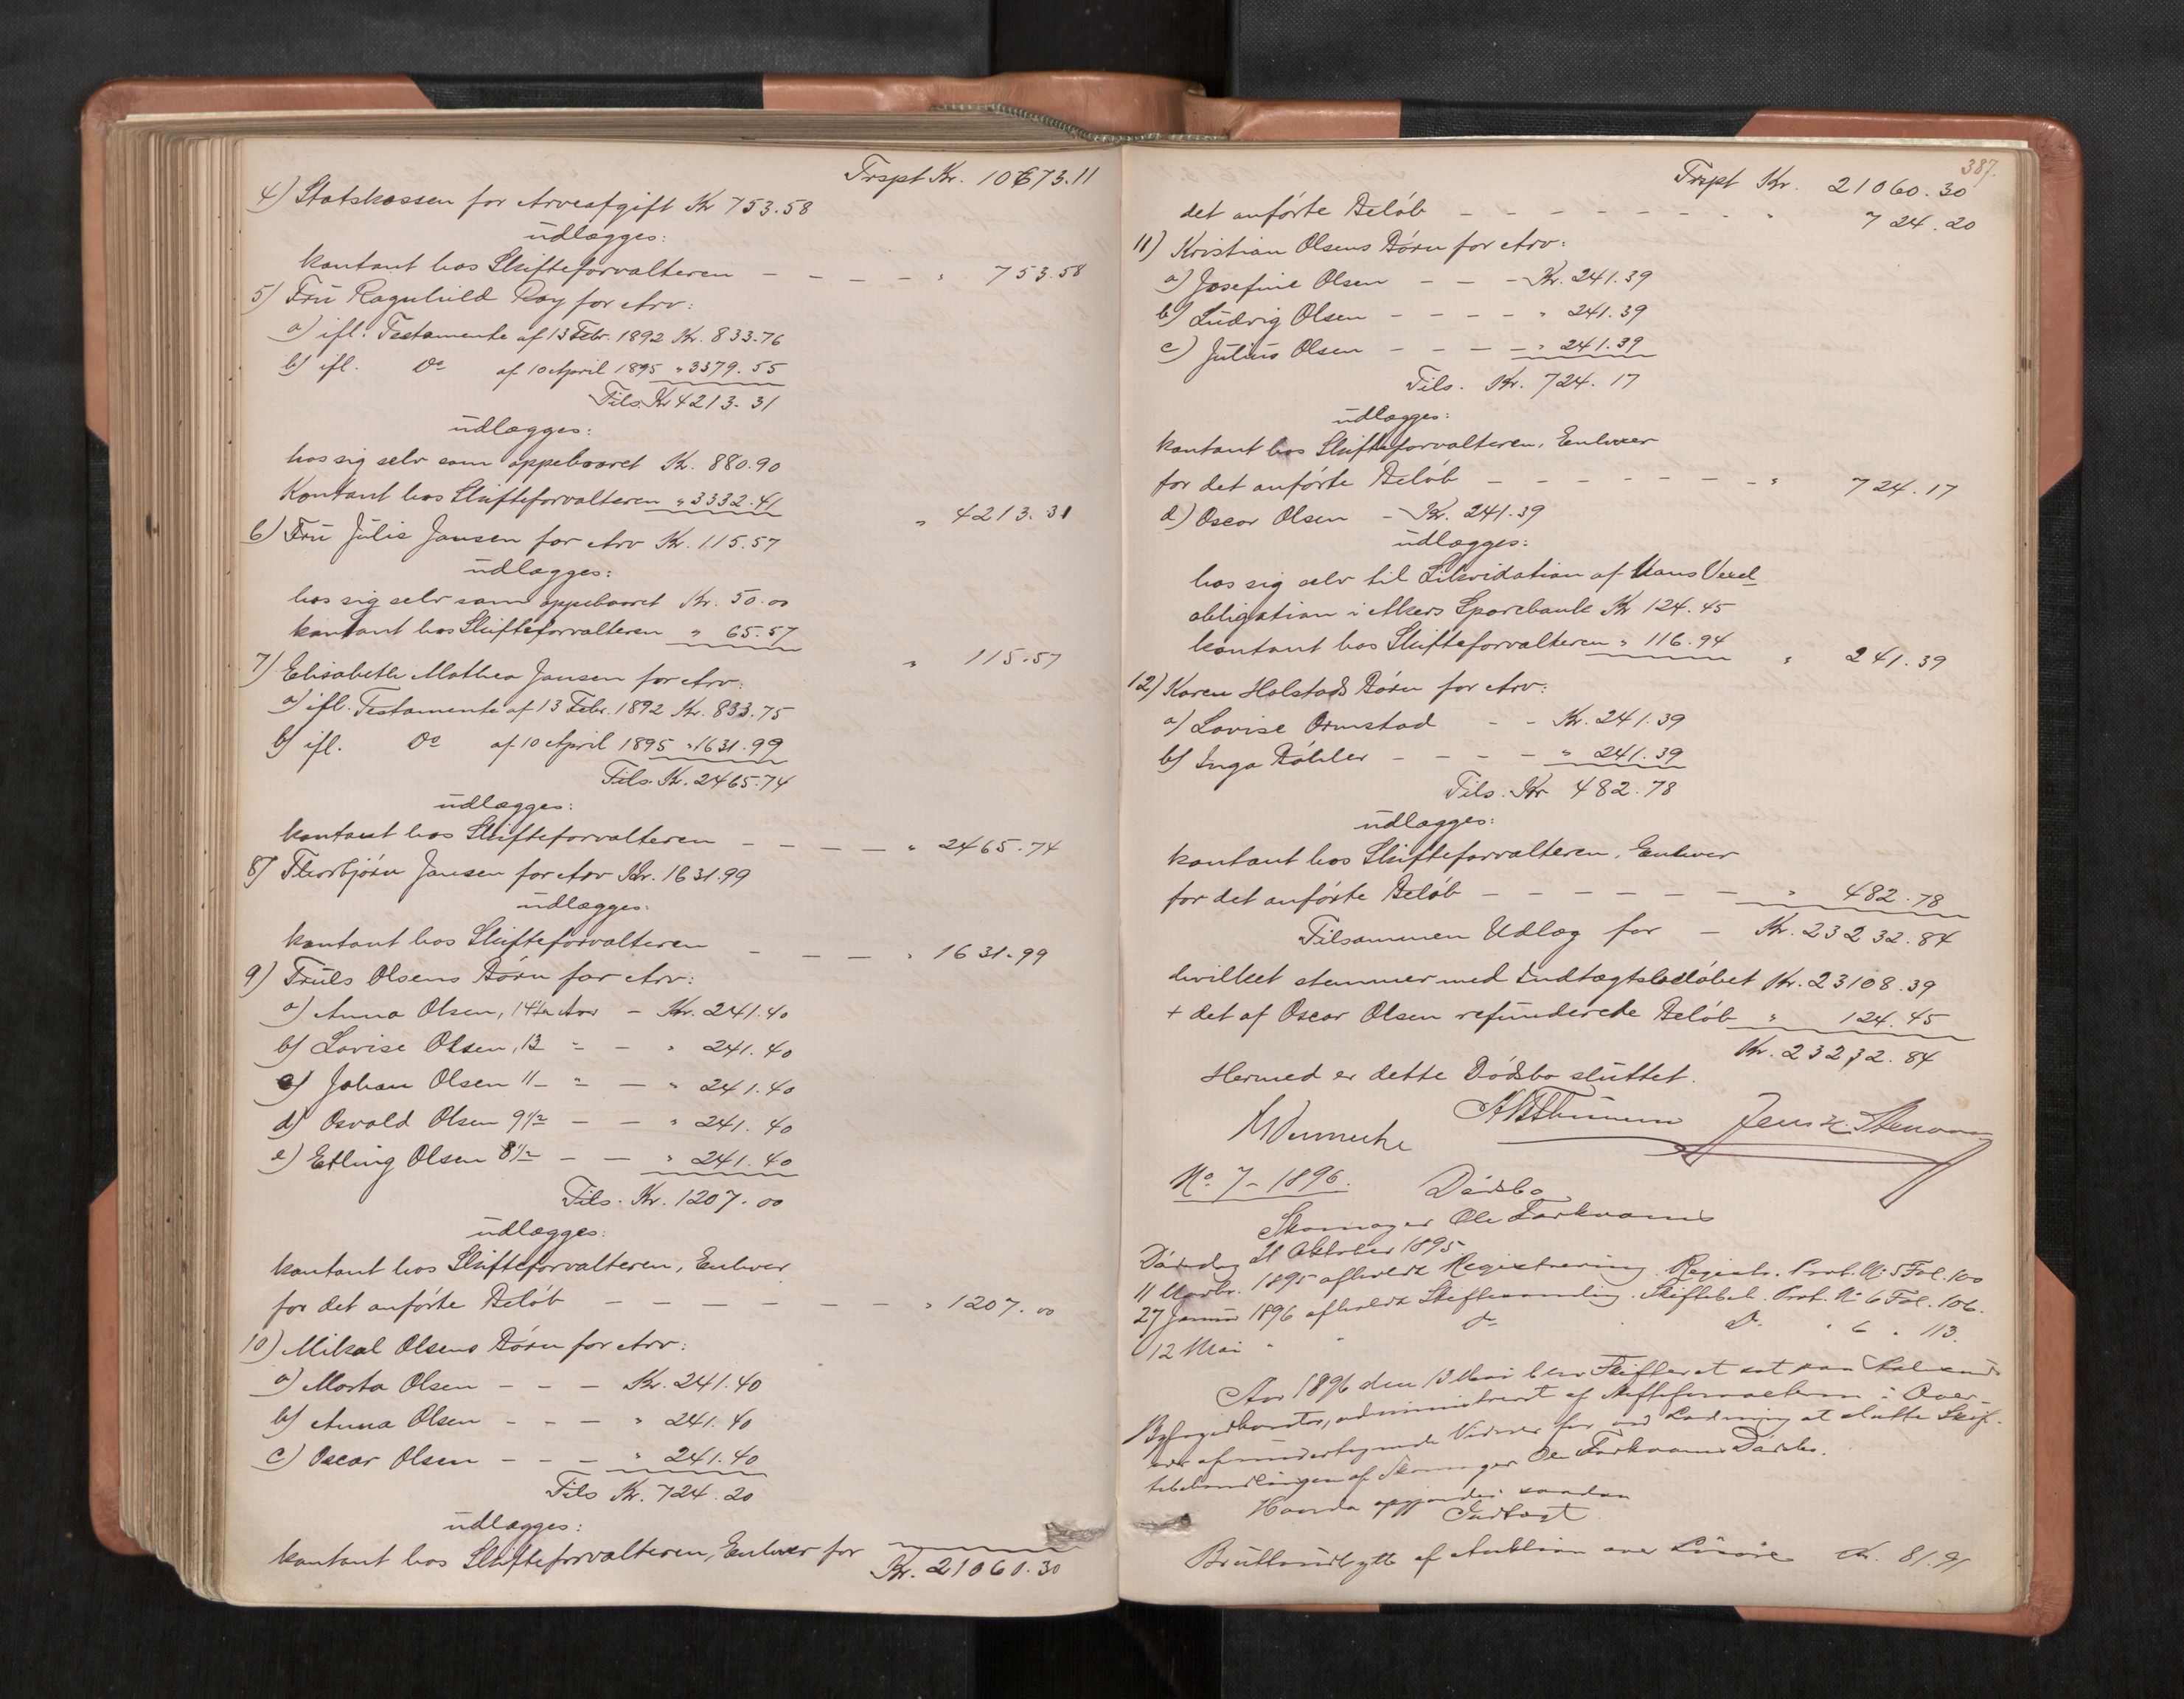 Trspt Kr. 10673.11
4) Statskassen for Arveafgift Kr 753.58
udlægges:
kontant hos Skifteforvalteren — — — — " 753.58
5) Fru Ragnhild Roy for Arv:
a) ifl. Testamente af 13 Febr. 1892 Kr. 833.76
b) ifl. Do af 10 April 1895 " 3379.55
Tils. Kr 4213.31
udlægges:
hos sig selv som oppebaaret Kr. 880.90
Kontant hos Skifteforvalteren " 3332.41
" 4213.31
6) Fru Julie Jansen for Arv Kr. 115.57
udlægges:
hos sig selv som oppebaaret Kr. 50.00
kontant hos Skifteforvalteren " 65.57
" 115.57
7) Elisabeth Mathea Jansen for Arv:
a) ifl. Testamente af 13 Febr. 1892 Kr. 833.75
b) ifl. Do af 10 April 1895 " 1631.99
Tils. Kr. 2465.74
udlægges:
kontant hos Skifteforvalteren — — — — " 2465.74
8) Thorbjørn Jansen for Arv Kr. 1631.99
udlægges:
kontant hos Skifteforvalteren — — — " 1631.99
9) Truls Olsens Børn for Arv:
a) Anna Olsen, 14½ Aar — Kr. 241.40
b) Lovise Olsen, 13 " — " 241.40
c) Johan Olsen 11 — " — " 241.40
d) Osvald Olsen 9½ — — " 241.40
e) Erling Olsen 8½ — — " 241.40
Tils. Kr. 1207.00
udlægges:
kontant hos Skifteforvalteren, Enhver
for det anførte Beløb — — — — — — — " 1207.00
10) Mikal Olsens Børn for Arv:
a) Marta Olsen — — — Kr. 241.40
b) Anna Olsen — — — " 241.40
c) Oscar Olsen — — — " 241.40
Tils Kr. 724.20
udlægges:
kontant hos Skifteforvalteren, Enhver for
Kr. 21060.30
387.
Trspt Kr. 21060.30
det anførte Beløb — — — — — — — " 724.20
11) Kristian Olsens Børn for Arv:
a) Josefine Olsen — — — Kr. 241.39
b) Ludvig Olsen — — — — " 241.39
c) Julius Olsen — — — — " 241.39
Tils. Kr. 724.17
udlægges:
kontant hos Skifteforvalteren, Enhver
for det anførte Beløb — — — — — — — " 724.17
d) Oscar Olsen — Kr. 241.39
udlægges:
hos sig selv til Likvidation af Hans Vexel
obligation i Akers Sparebank Kr 124.45
kontant hos Skifteforvalteren " 116.94
" 241.39
12) Karen Holstads Børn for Arv:
a) Lovise Ormstad — — Kr. 241.39
b) Inga Bøhler — — — — " 241.39
Tils. Kr 482.78
udlægges:
kontant hos Skifteforvalteren, Enhver
for det anførte Beløb — — — — — — " 482.78
Tilsammen Udlæg for — Kr. 23232.84
hvilket stemmer med Indtægtsbeløbet Kr. 23108.39
+ det af Oscar Olsen refunderede Beløb " 124.45
Kr. 23232.84
Hermed er dette Dødsbo sluttet.
No. 7 – 1896. Dødsbo
Skomager Ole Torkvams
Dødsdag 21 Oktober 1895
11 Novbr. 1895 afholdt Registrering. Registr. Prot. No 5 Fol. 100
27 Januar 1896 afholdt Skiftesamling. Skiftebeh. Prot. No 6 Fol. 106.
12 Mai " do " Do " 6 " 113.
Aar 1896 den 13 Mai blev Skifteret sat paa
Byfogedkontor, administreret af Skifteforvalteren i Over-
vær af undertegnede Vidner for ved Lodning at slutte Skif-
tebehandlingen af Skomager Ole Torkvams Dødsbo.
Hvorda opgjordes saadan
Indtægt
Bruttoudbytte af Auktion over Løsøre Kr. 81.91